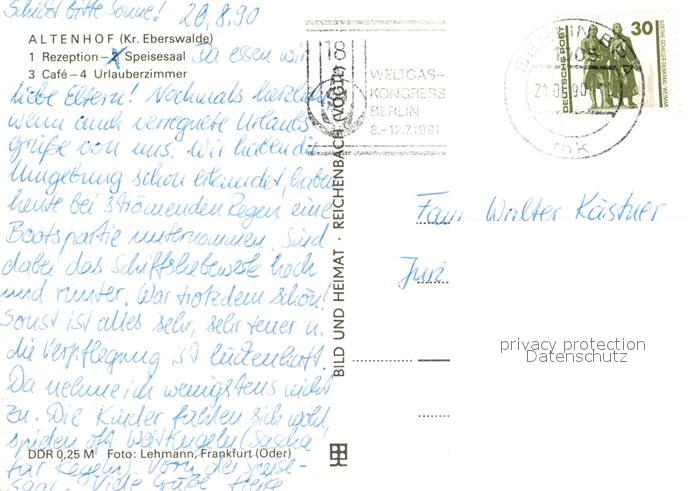 Schickt bitte Sonne! 20.8.90
ALTENHOF (Kr. Eberswalde)
1 Rezeption – 2 Speisesaal Da essen wir
3 Café – 4 Urlauberzimmer
Liebe Eltern! Nochmals herzliche
wenn auch verregnete Urlaubs-
grüße von uns. Wir haben die
Umgebung schon erkundet, haben
heute bei strömenden Regen eine
Bootspartie unternommen. Sind
dabei das Schiffshebewerk hoch
und runter. War trotzdem schön!
Sonst ist alles sehr, sehr teuer u.
die Verpflegung ist lückenhaft.
Da nehme ich wenigstens nicht
zu. Die Kinder fühlen sich wohl,
spielen oft (Sascha
DDR 0,25 M Foto: Lehmann, Frankfurt (Oder)
für Kegeln). Vorn der Speise-
saal. Viele Grüße Heike
BILD UND HEIMAT · REICHENBACH (VOGTL)
18
WELTGAS-
KONGRESS
BERLIN
8.-12.7.1991
BERLIN BPA
21.08.90
mk
DEUTSCHE POST
30
GOETHE-SCHILLER-DENKMAL · WEIMAR
Fam Walter Kästner
privacy protection
Datenschutz